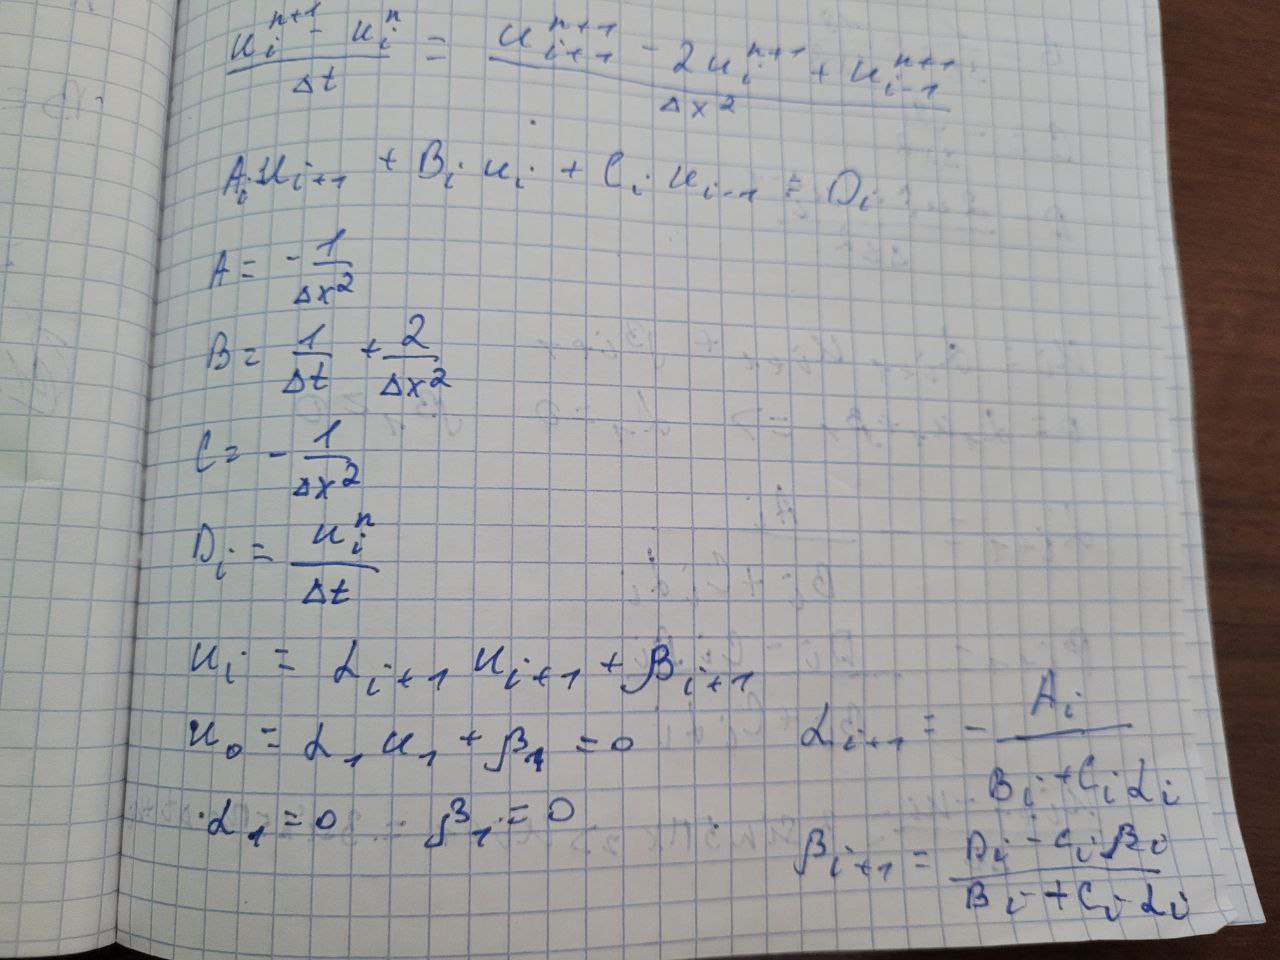 (u_i^{n+1} - u_i^n) / Δt = (u_{i+1}^{n+1} - 2u_i^{n+1} + u_{i-1}^{n+1}) / Δx²
A_i u_{i+1} + B_i u_i + C_i u_{i-1} = D_i
A = - 1/Δx²
B = 1/Δt + 2/Δx²
C = - 1/Δx²
D_i = u_i^n / Δt
u_i = α_{i+1} u_{i+1} + β_{i+1}
u_0 = α_1 u_1 + β_1 = 0
α_{i+1} = - A_i / (B_i + C_i α_i)
α_1 = 0 β_1 = 0
β_{i+1} = (D_i - C_i β_i) / (B_i + C_i α_i)